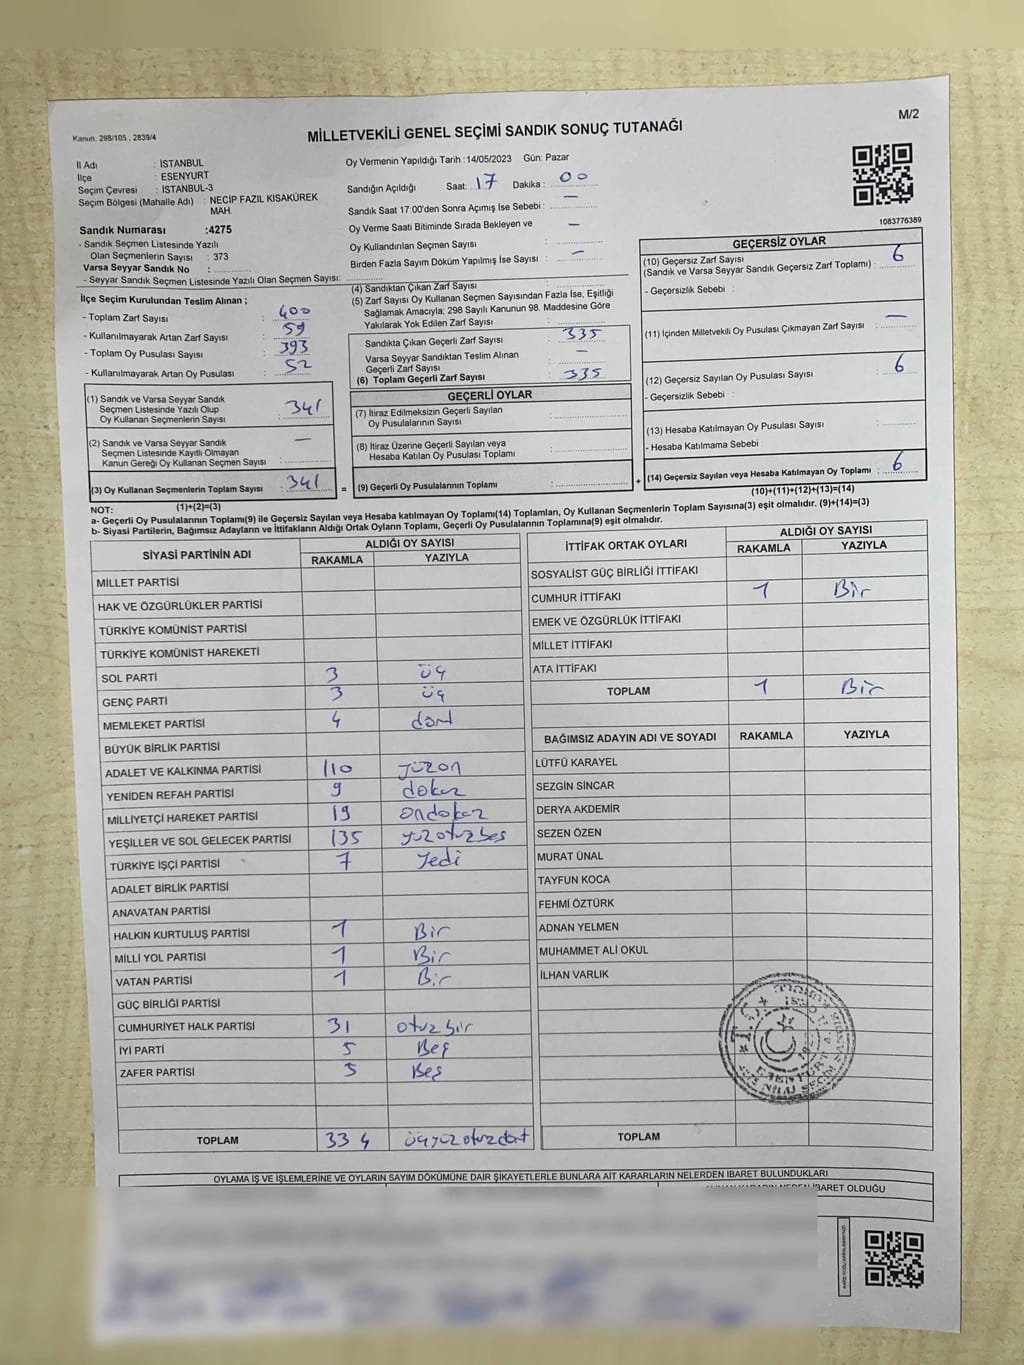 Kanun: 298/105 , 2839/4
M/2
MİLLETVEKİLİ GENEL SEÇİMİ SANDIK SONUÇ TUTANAĞI
İl Adı : İSTANBUL
İlçe : ESENYURT
Seçim Çevresi : İSTANBUL-3
Seçim Bölgesi (Mahalle Adı) : NECİP FAZIL KISAKÜREK
MAH.
Sandık Numarası :4275
- Sandık Seçmen Listesinde Yazılı
Olan Seçmenlerin Sayısı : 373
Varsa Seyyar Sandık No :
- Seyyar Sandık Seçmen Listesinde Yazılı Olan Seçmen Sayısı:
Oy Vermenin Yapıldığı Tarih :14/05/2023 Gün: Pazar
Sandığın Açıldığı Saat: 17 Dakika : 00
Sandık Saat 17:00'den Sonra Açımış İse Sebebi : —
Oy Verme Saati Bitiminde Sırada Bekleyen ve —
Oy Kullandırılan Seçmen Sayısı :
Birden Fazla Sayım Döküm Yapılmış İse Sayısı : —
1083776389
İlçe Seçim Kurulundan Teslim Alınan ;
- Toplam Zarf Sayısı : 400
- Kullanılmayarak Artan Zarf Sayısı : 59
- Toplam Oy Pusulası Sayısı : 393
- Kullanılmayarak Artan Oy Pusulası : 52
(1) Sandık ve Varsa Seyyar Sandık
Seçmen Listesinde Yazılı Olup
Oy Kullanan Seçmenlerin Sayısı : 341
(2) Sandık ve Varsa Seyyar Sandık —
Seçmen Listesinde Kayıtlı Olmayan
Kanun Gereği Oy Kullanan Seçmen Sayısı :
(3) Oy Kullanan Seçmenlerin Toplam Sayısı : 341
(1)+(2)=(3)
(4) Sandıktan Çıkan Zarf Sayısı :
(5) Zarf Sayısı Oy Kullanan Seçmen Sayısından Fazla İse, Eşitliği
Sağlamak Amacıyla; 298 Sayılı Kanunun 98. Maddesine Göre
Yakılarak Yok Edilen Zarf Sayısı :
Sandıkta Çıkan Geçerli Zarf Sayısı : 335
Varsa Seyyar Sandıktan Teslim Alınan —
Geçerli Zarf Sayısı :
(6) Toplam Geçerli Zarf Sayısı : 335
GEÇERLİ OYLAR
(7) İtiraz Edilmeksizin Geçerli Sayılan
Oy Pusulalarının Sayısı :
(8) İtiraz Üzerine Geçerli Sayılan veya
Hesaba Katılan Oy Pusulası Toplamı :
= (9) Geçerli Oy Pusulalarının Toplamı : +
GEÇERSİZ OYLAR
(10) Geçersiz Zarf Sayısı 6
(Sandık ve Varsa Seyyar Sandık Geçersiz Zarf Toplamı) :
- Geçersizlik Sebebi :
(11) İçinden Milletvekili Oy Pusulası Çıkmayan Zarf Sayısı : —
(12) Geçersiz Sayılan Oy Pusulası Sayısı : 6
- Geçersizlik Sebebi :
(13) Hesaba Katılmayan Oy Pusulası Sayısı :
- Hesaba Katılmama Sebebi :
(14) Geçersiz Sayılan veya Hesaba Katılmayan Oy Toplamı : 6
(10)+(11)+(12)+(13)=(14)
NOT:
a- Geçerli Oy Pusulalarının Toplamı(9) ile Geçersiz Sayılan veya Hesaba katılmayan Oy Toplamı(14) Toplamları, Oy Kullanan Seçmenlerin Toplam Sayısına(3) eşit olmalıdır. (9)+(14)=(3)
b- Siyasi Partilerin, Bağımsız Adayların ve İttifakların Aldığı Ortak Oyların Toplamı, Geçerli Oy Pusulalarının Toplamına(9) eşit olmalıdır.
SİYASİ PARTİNİN ADI ALDIĞI OY SAYISI
RAKAMLA YAZIYLA
MİLLET PARTİSİ
HAK VE ÖZGÜRLÜKLER PARTİSİ
TÜRKİYE KOMÜNİST PARTİSİ
TÜRKİYE KOMÜNİST HAREKETİ
SOL PARTİ 3 üç
GENÇ PARTİ 3 üç
MEMLEKET PARTİSİ 4 dört
BÜYÜK BİRLİK PARTİSİ
ADALET VE KALKINMA PARTİSİ 110 yüzon
YENİDEN REFAH PARTİSİ 9 dokuz
MİLLİYETÇİ HAREKET PARTİSİ 19 ondokuz
YEŞİLLER VE SOL GELECEK PARTİSİ 135 yüzotuzbeş
TÜRKİYE İŞÇİ PARTİSİ 7 Yedi
ADALET BİRLİK PARTİSİ
ANAVATAN PARTİSİ
HALKIN KURTULUŞ PARTİSİ 1 Bir
MİLLİ YOL PARTİSİ 1 Bir
VATAN PARTİSİ 1 Bir
GÜÇ BİRLİĞİ PARTİSİ
CUMHURİYET HALK PARTİSİ 31 otuzbir
İYİ PARTİ 5 Beş
ZAFER PARTİSİ 5 Beş
TOPLAM 334 üçyüzotuzdört
İTTİFAK ORTAK OYLARI ALDIĞI OY SAYISI
RAKAMLA YAZIYLA
SOSYALİST GÜÇ BİRLİĞİ İTTİFAKI
CUMHUR İTTİFAKI 1 Bir
EMEK VE ÖZGÜRLÜK İTTİFAKI
MİLLET İTTİFAKI
ATA İTTİFAKI
TOPLAM 1 Bir
BAĞIMSIZ ADAYIN ADI VE SOYADI RAKAMLA YAZIYLA
LÜTFÜ KARAYEL
SEZGİN SİNCAR
DERYA AKDEMİR
SEZEN ÖZEN
MURAT ÜNAL
TAYFUN KOCA
FEHMİ ÖZTÜRK
ADNAN YELMEN
MUHAMMET ALİ OKUL
İLHAN VARLIK
T.C.
TOPLAM
OYLAMA İŞ VE İŞLEMLERİNE VE OYLARIN SAYIM DÖKÜMÜNE DAİR ŞİKAYETLERLE BUNLARA AİT KARARLARIN NELERDEN İBARET BULUNDUKLARI
İBARET OLDUĞU